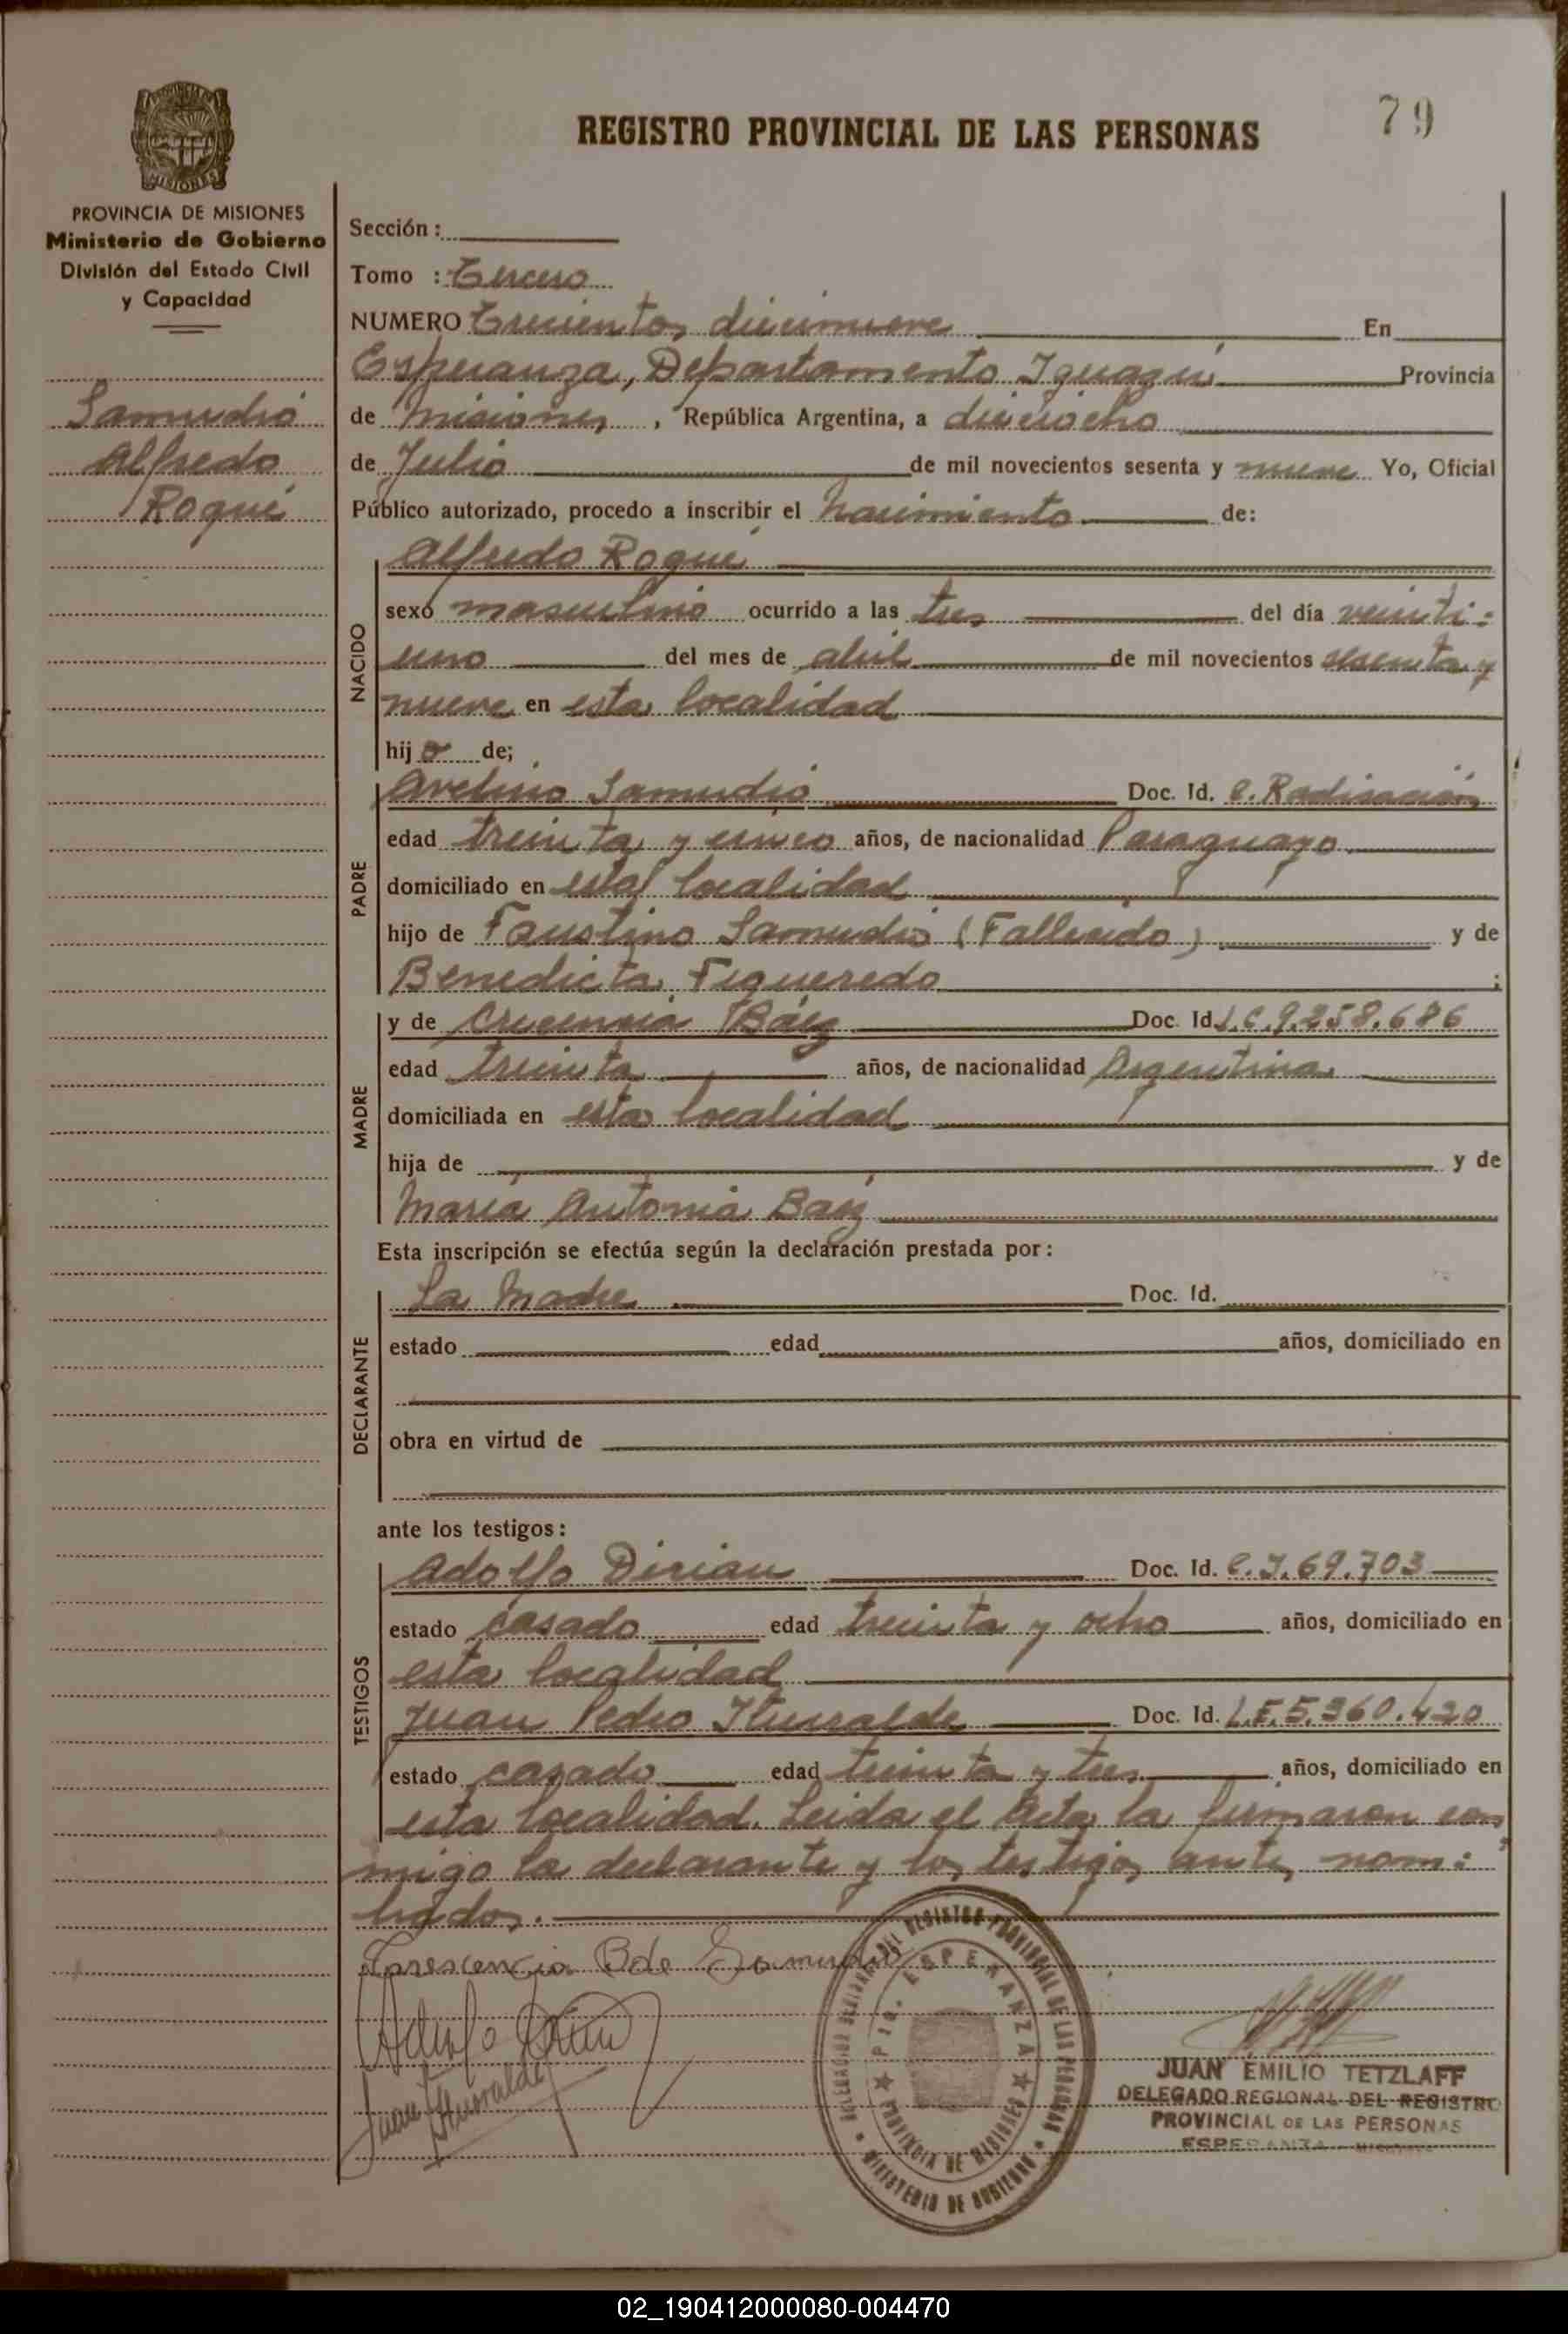 79
REGISTRO PROVINCIAL DE LAS PERSONAS
MISIONES
PROVINCIA DE MISIONES
Ministerio de Gobierno
División del Estado Civil
y Capacidad
Samudio
Alfredo
Roqué
Sección :
Tomo : Tercero
NUMERO Trecientos diecinueve En
Esperanza, Departamento Iguazú Provincia
de Misiones, República Argentina, a dieciocho
de Julio de mil novecientos sesenta y nueve Yo, Oficial
Público autorizado, procedo a inscribir el Nacimiento de:
NACIDO
Alfredo Roqué
sexo masculino ocurrido a las tres del día veinti=
uno del mes de abril de mil novecientos sesenta y
nueve en esta localidad
hijo de;
PADRE
Avelino Samudio Doc. Id. C. Radicación
edad treinta y cinco años, de nacionalidad Paraguayo
domiciliado en esta localidad
hijo de Faustino Samudio (Fallecido) y de
Benedicta Figueredo ;
MADRE
y de Crecencia Báez Doc. Id L.C. 9.258.686
edad treinta años, de nacionalidad Argentina
domiciliada en esta localidad
hija de y de
María Antonia Baez
Esta inscripción se efectúa según la declaración prestada por :
DECLARANTE
La Madre Doc. Id.
estado edad años, domiciliado en
obra en virtud de
ante los testigos :
TESTIGOS
Adolfo Dirian Doc. Id. C.I. 69.703
estado casado edad treinta y ocho años, domiciliado en
esta localidad
Juan Pedro Iturralde Doc. Id. L.E. 5.360.420
estado casado edad treinta y tres años, domiciliado en
esta localidad. Leida el Acta la firmaron con
migo la declarante y los testigos antes nom=
brados.
Crescencia B de Samudio
Adolfo
Juan Iturralde
DELEGACION REGIONAL DEL REGISTRO PROVINCIAL DE LAS PERSONAS
PTO. ESPERANZA
PROVINCIA DE MISIONES
MINISTERIO DE GOBIERNO
JUAN EMILIO TETZLAFF
DELEGADO REGIONAL DEL REGISTRO
PROVINCIAL DE LAS PERSONAS
ESPERANZA - MISIONES
02_190412000080-004470